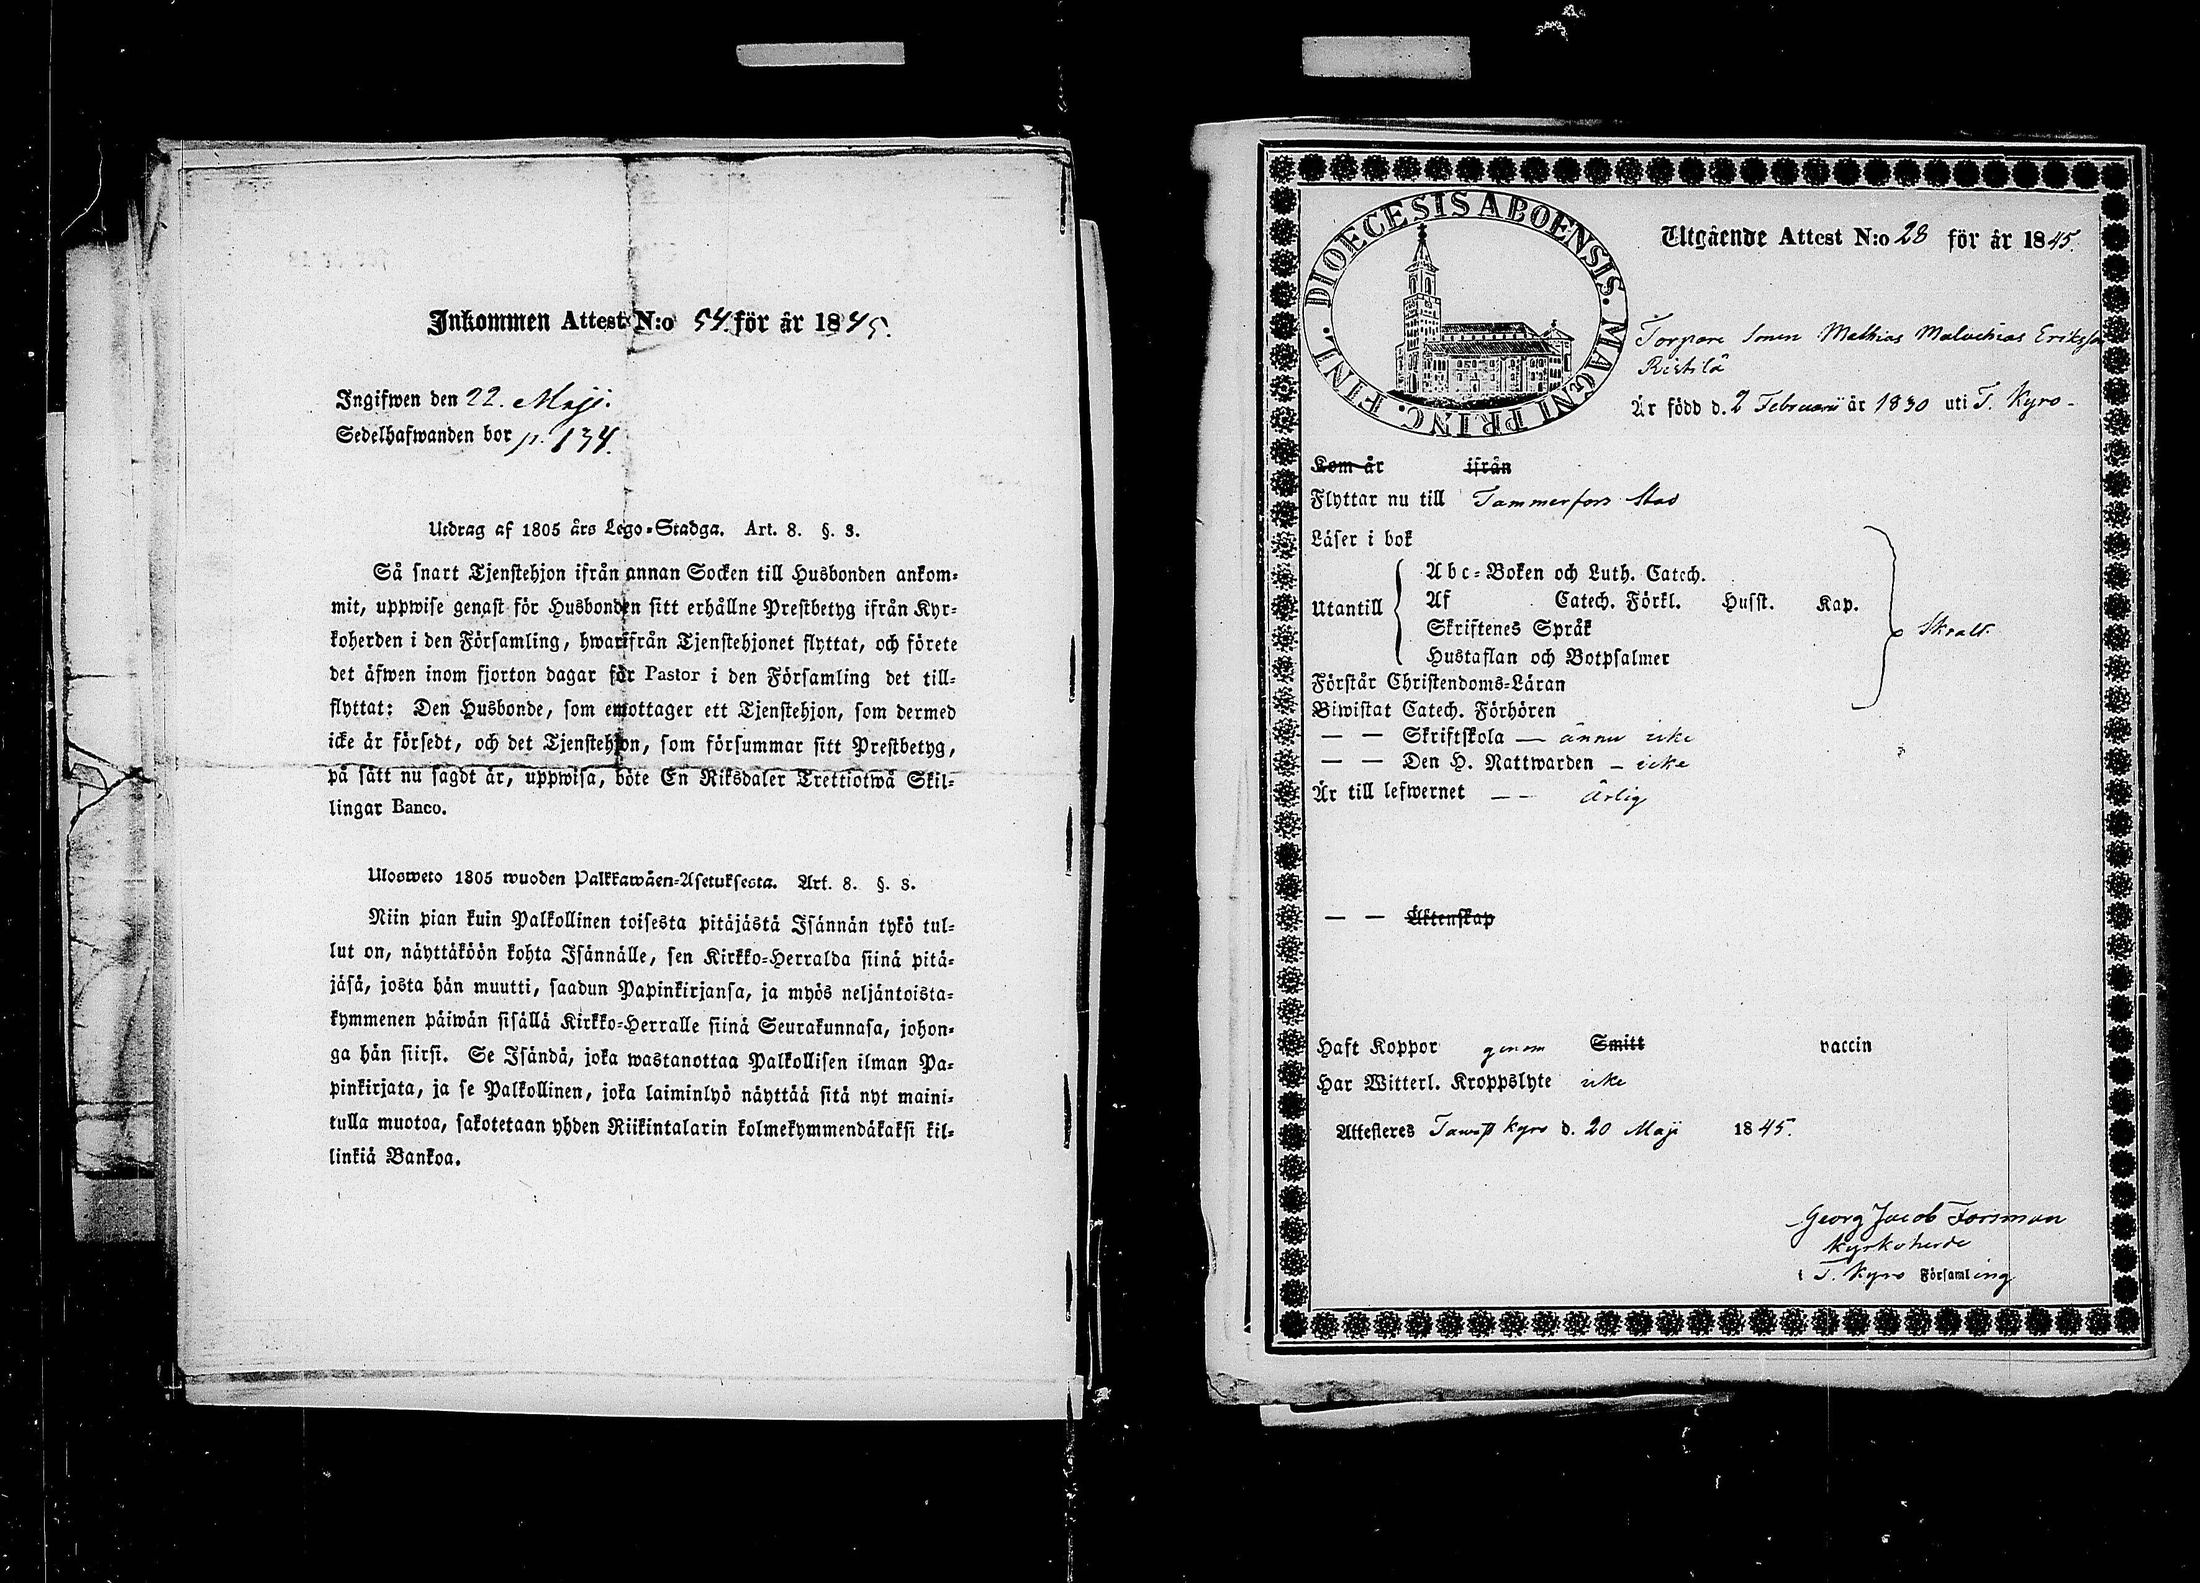 Inkommen Attest N:o 54 för år 1845.
Ingifwen den 22. Maji.
Sedelhafwanden bor p. 134.
Utdrag af 1805 års Lego-Stadga. Art. 8. §. 3.
Så snart Tjenstehjon ifrån annan Socken till Husbonden ankom-
mit, uppwise genast för Husbonden sitt erhållne Prestbetyg ifrån Kyr-
koherden i den Församling, hwarifrån Tjenstehjonet flyttat, och förete
det äfwen inom fjorton dagar för Pastor i den Församling det till-
flyttat: Den Husbonde, som emottager ett Tjenstehjon, som dermed
icke är försedt, och det Tjenstehjon, som försummar sitt Prestbetyg,
på sätt nu sagdt är, uppwisa, böte En Riksdaler Trettiotwå Skil-
lingar Banco.
Ulosweto 1805 wuoden Palkkawäen-Asetuksesta. Art. 8. §. 3.
Niin pian kuin Palkollinen toisesta pitäjästä Isännän tykö tul-
lut on, näyttäköön kohta Isännälle, sen Kirkko-Herralda siinä pitä-
jäsä, josta hän muutti, saadun Papinkirjansa, ja myös neljäntoista-
kymmenen päiwän sisällä Kirkko-Herralle siinä Seurakunnasa, johon-
ga hän siirsi. Se Isändä, joka wastanottaa Palkollisen ilman Pa-
pinkirjata, ja se Palkollinen, joka laiminlyö näyttää sitä nyt maini-
tulla muotoa, sakotetaan yhden Riikintalarin kolmekymmendäkaksi kil-
linkiä Bankoa.
DIOECESIS ABOENSIS. MAGNI PRINC. FINL.
Utgående Attest N:o 28 för år 1845.
Torpare Sonen Mathias Malachias Eriksson
Ristilä
Är född d. 2 Februarii år 1830 uti T. Kyro-
Kom år ifrån
Flyttar nu till Tammerfors Stad
Läser i bok
Abc-Boken och Luth. Catech.
Utantill Af Catech. Förkl. Husst. Kap.
Skriftenes Språk
Hustaflan och Botpsalmer
Förstår Christendoms-Läran
Biwistat Catech. Förhören
— — Skriftskola — ännu icke
— — Den H. Nattwarden — icke
Är till lefwernet — — ärlig
— — Äktenskap
Haft Koppor genom Smitt vaccin
Har Witterl. Kroppslyte icke
Attesteres Tawast Kyro d. 20 Maji 1845.
Georg Jacob Forsman
Kyrkoherde
i T. Kyro Församling